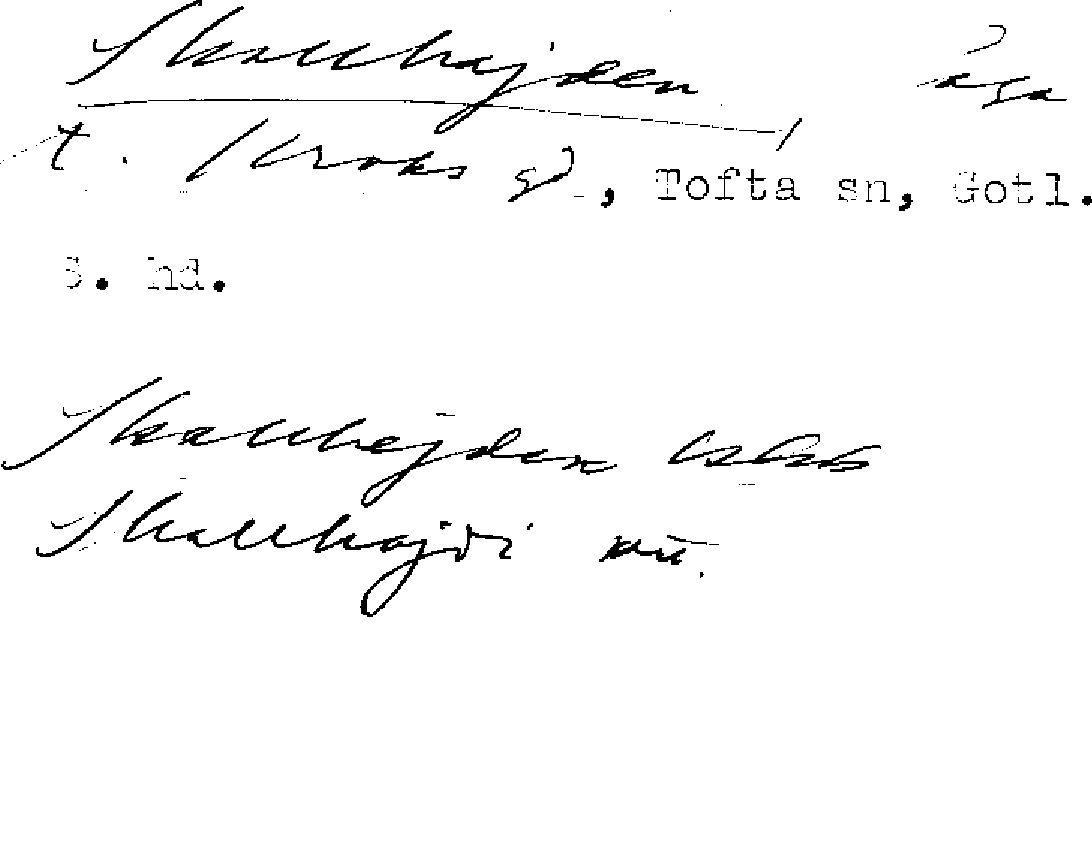 Skallhajden
t. Kroks gd, Tofta sn, Gotl.
S. hd.
Skallhejden
Skallhajdi